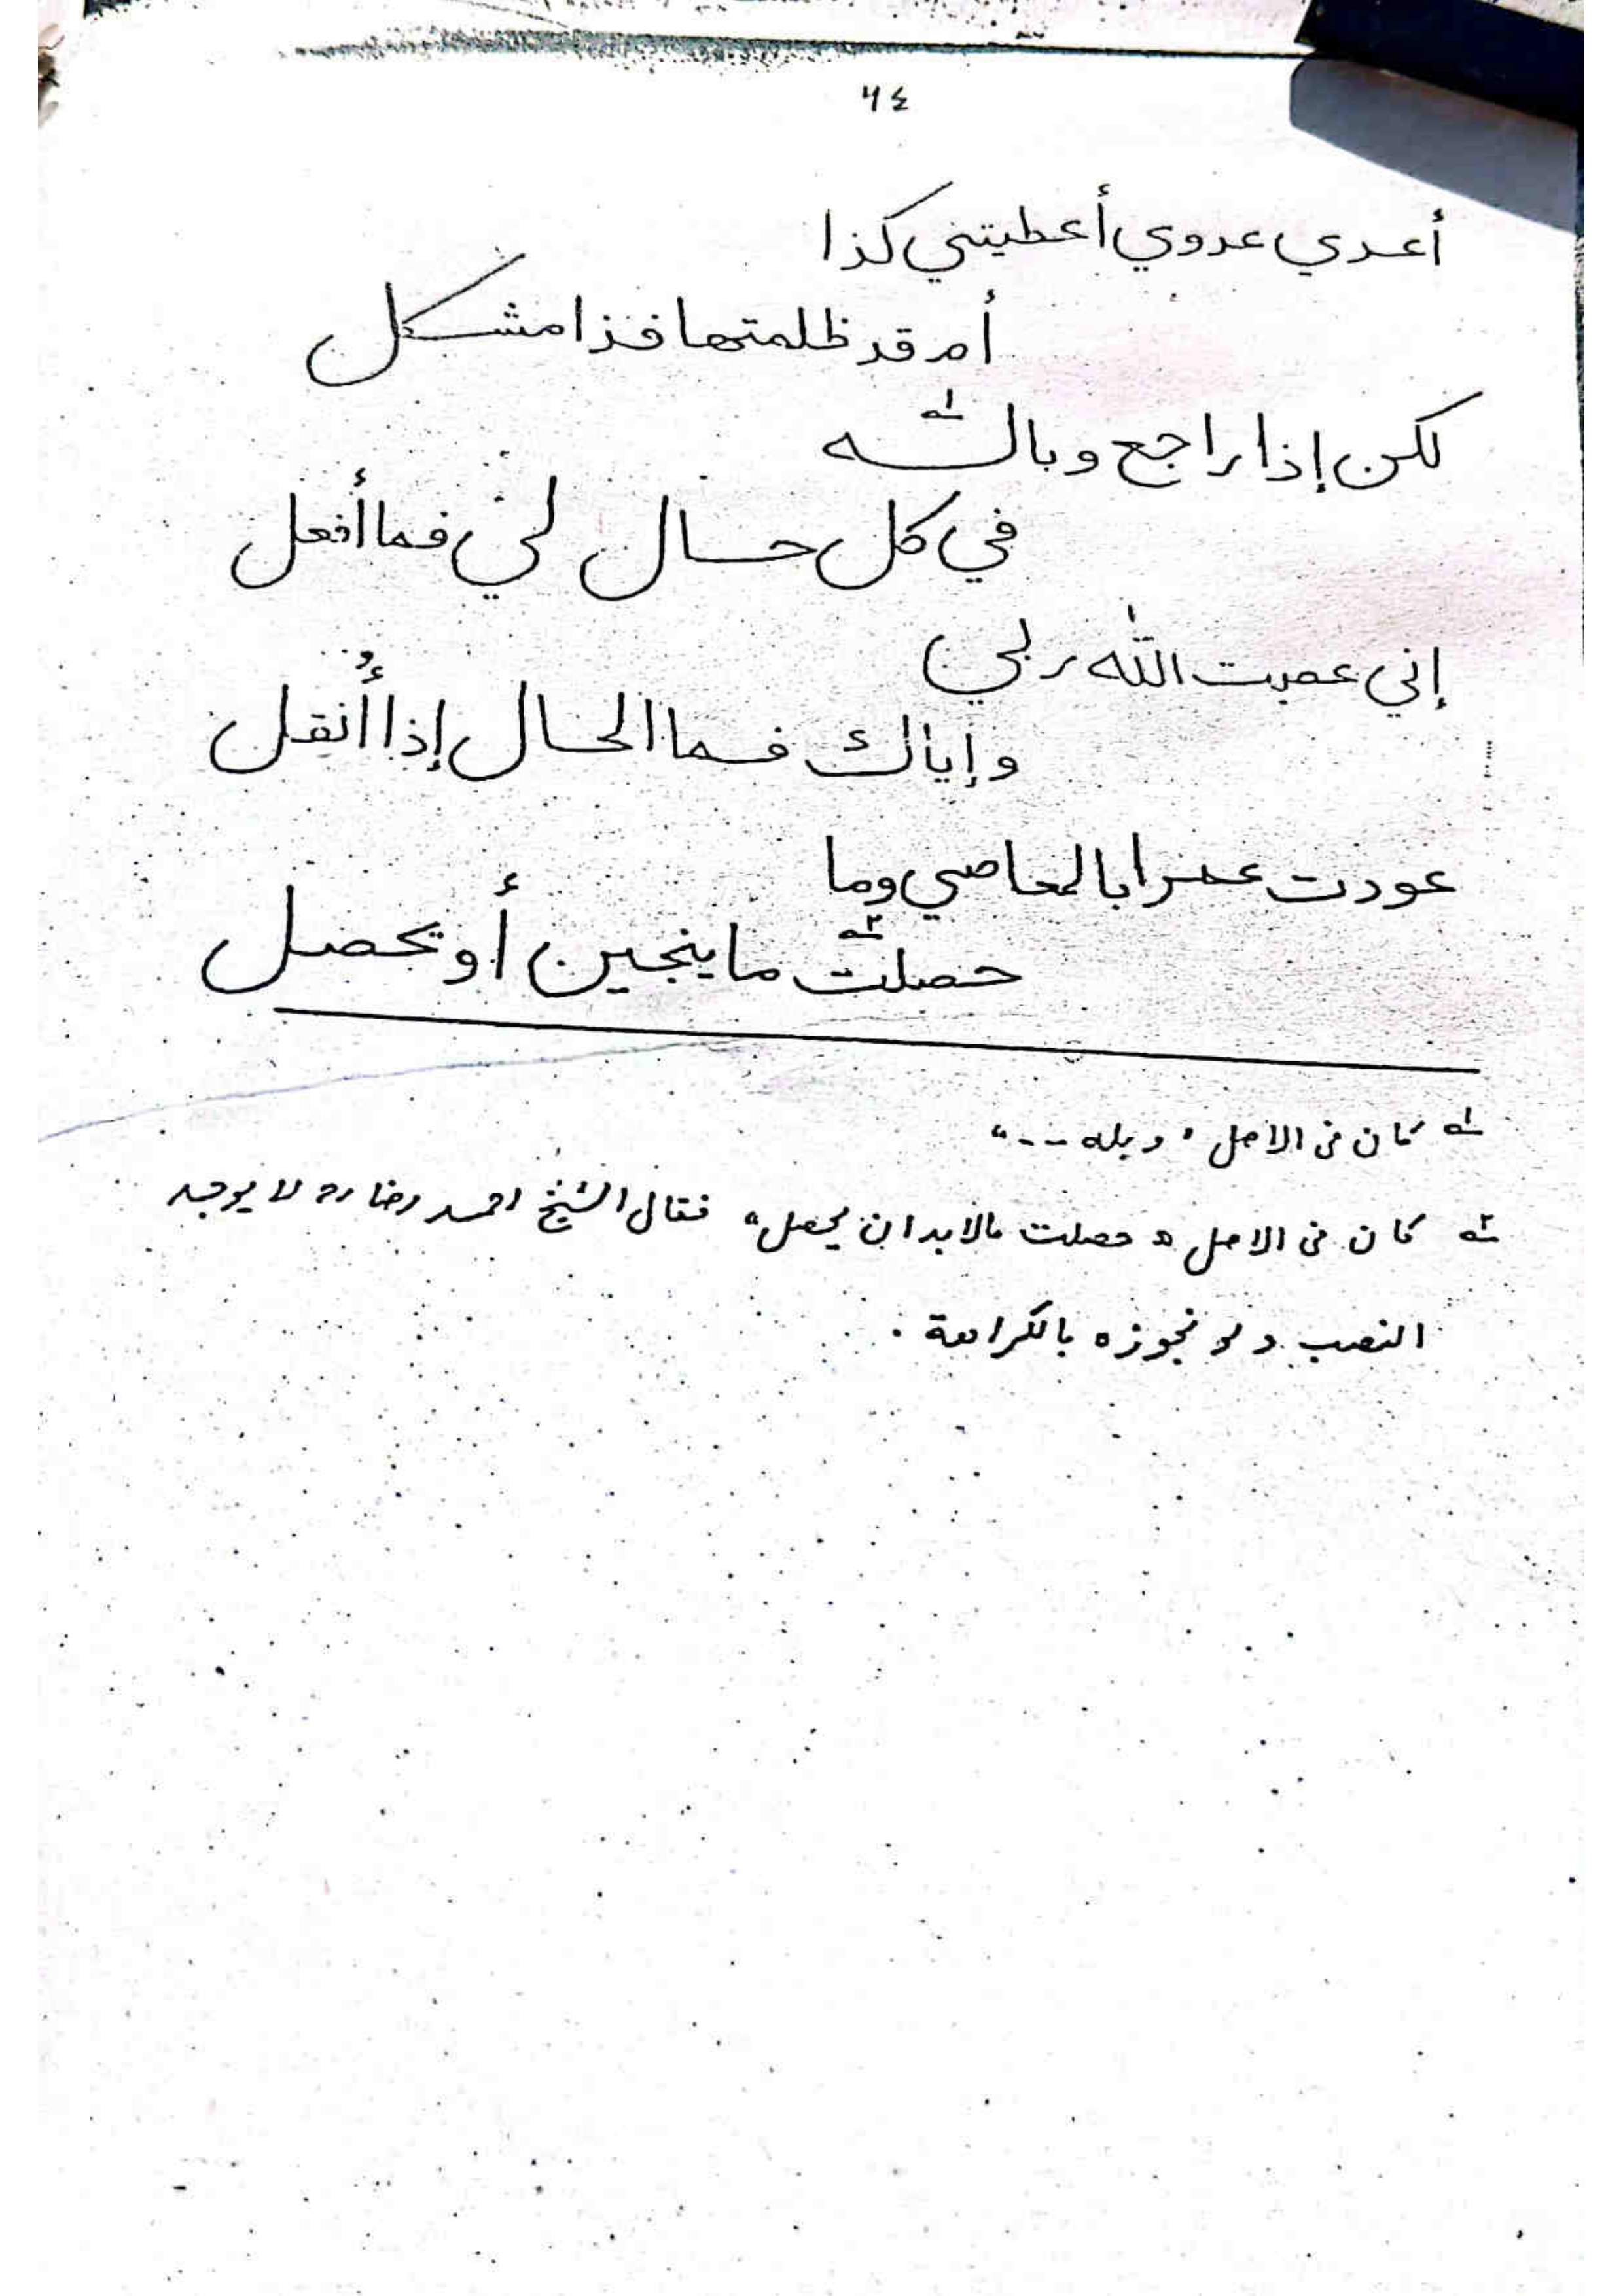 ٦٤
أعدي عدوي أعطيتني كذا
أم قد ظلمتها فذا مشكل
لكن إذا راجع وباله
في كل حال لي فما أفعل
إني عصيت الله ربي
وإياك فما الحال إذا أُنقل
عودت عمرا بالمعاصي وما
حصلت ما ينجين أو يحصل
له كان في الاصل " وبله --- "
كان في الاصل " حصلت مالابد ان يحصل " فقال الشيخ احمد رضا رح لا يوجد
النصب ولو نجوزه بالكراهة .